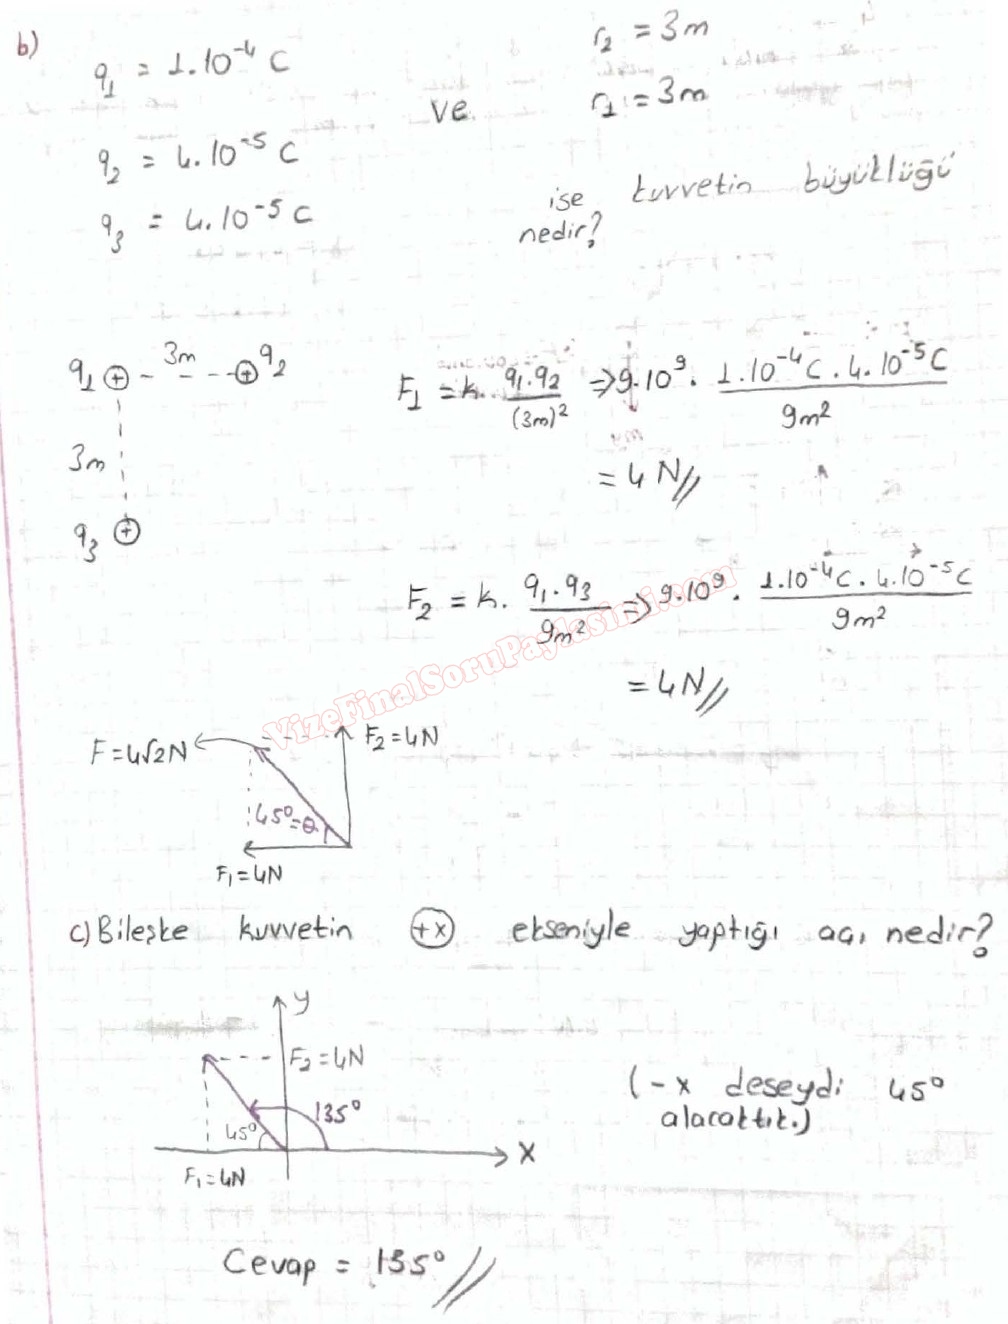 b)
q₁ = 1.10⁻⁴ C
q₂ = 4.10⁻⁵ C
q₃ = 4.10⁻⁵ C
ve
r₂ = 3m
r₁ = 3m
ise kuvvetin büyüklüğü
nedir?
q₁ ⊕ - 3m - - ⊕ q₂
3m
q₃ ⊕
F₁ = k. q₁.q₂/(3m)² ⇒ 9.10⁹. 1.10⁻⁴C . 4.10⁻⁵C/9m²
= 4N//
F₂ = k. q₁.q₃/9m² ⇒ 9.10⁹. 1.10⁻⁴C . 4.10⁻⁵C/9m²
= 4N//
VizeFinalSoruPaylasimi.com
F = 4√2N
F₂ = 4N
45° = θ
F₁ = 4N
c) Bileşke kuvvetin (+x) ekseniyle yaptığı açı nedir?
y
F₂ = 4N
135°
45°
x
F₁ = 4N
(-x deseydi 45°
alacaktık.)
Cevap = 135°//